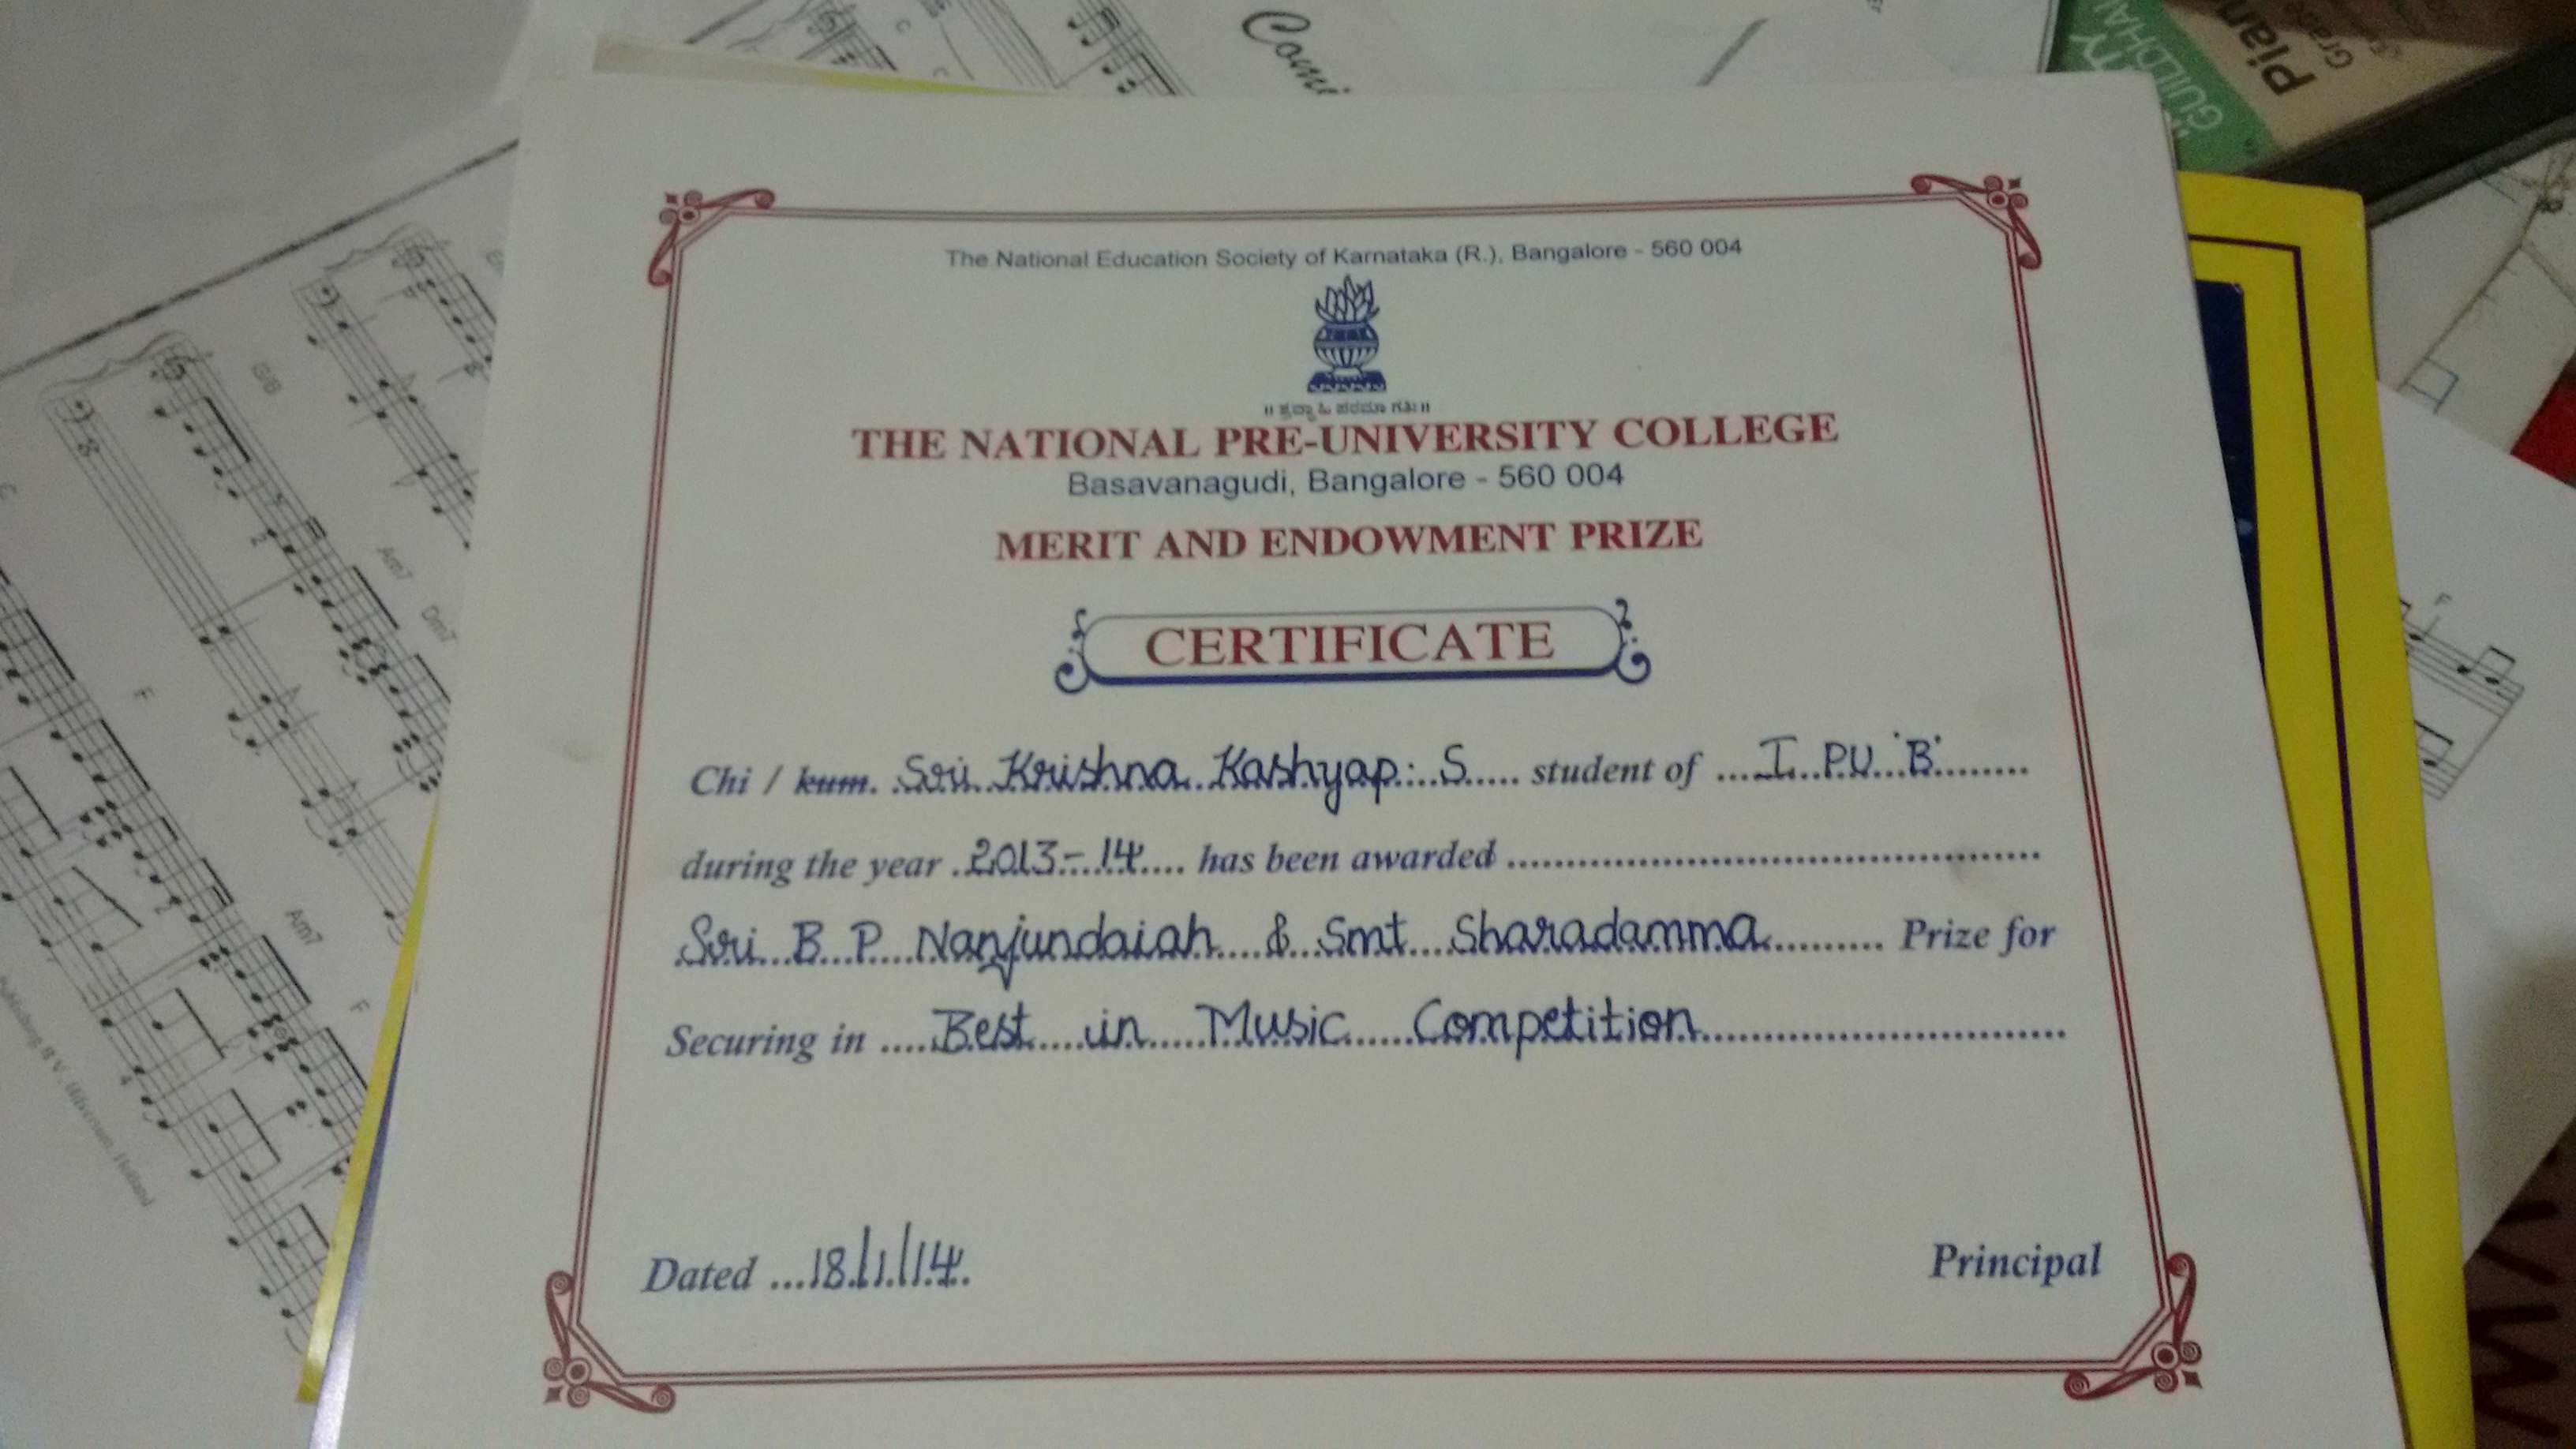 Comi
GUILDHA
Pian
Grade
The National Education Society of Karnataka (R.), Bangalore - 560 004
THE NATIONAL PRE-UNIVERSITY COLLEGE
Basavanagudi, Bangalore - 560 004
MERIT AND ENDOWMENT PRIZE
CERTIFICATE
Chi / kum. Sri Krishna Kashyap. S student of I PU 'B'
during the year 2013-14 has been awarded
Sri B P Nanjundaiah & Smt Sharadamma Prize for
Securing in Best in Music Competition
Dated 18/1/14
Principal
C
C
G/B
Am7
Dm7
F
Am7
F
F
Publishing B.V., Hilversum, Holland